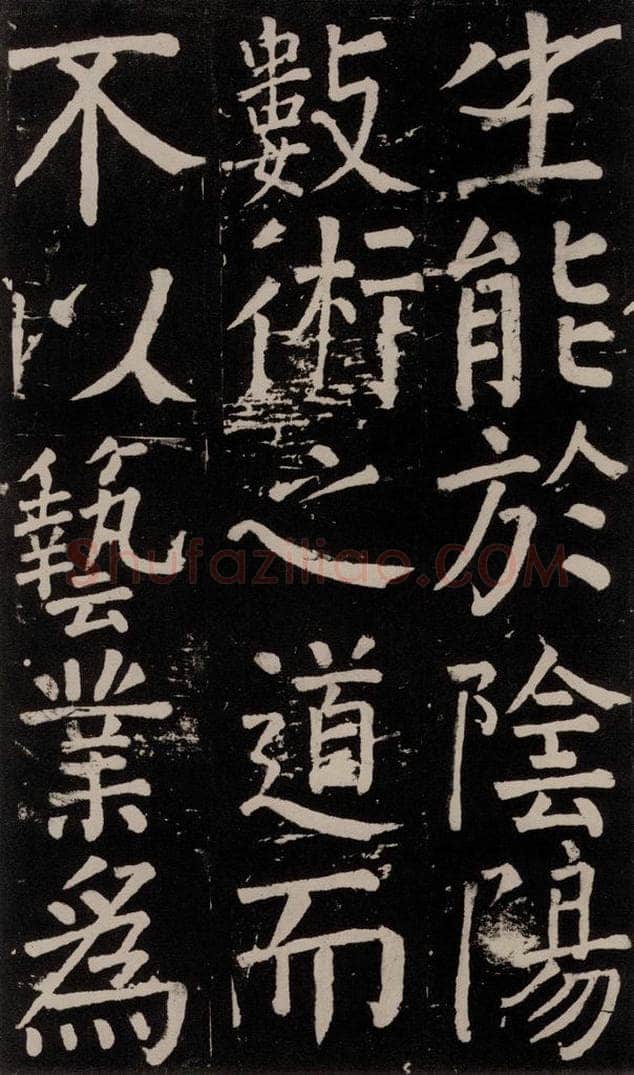 生能於陰陽
數術之道而
不以藝業為
Shufaziliao.COM